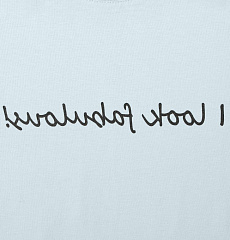 I look fabulous!